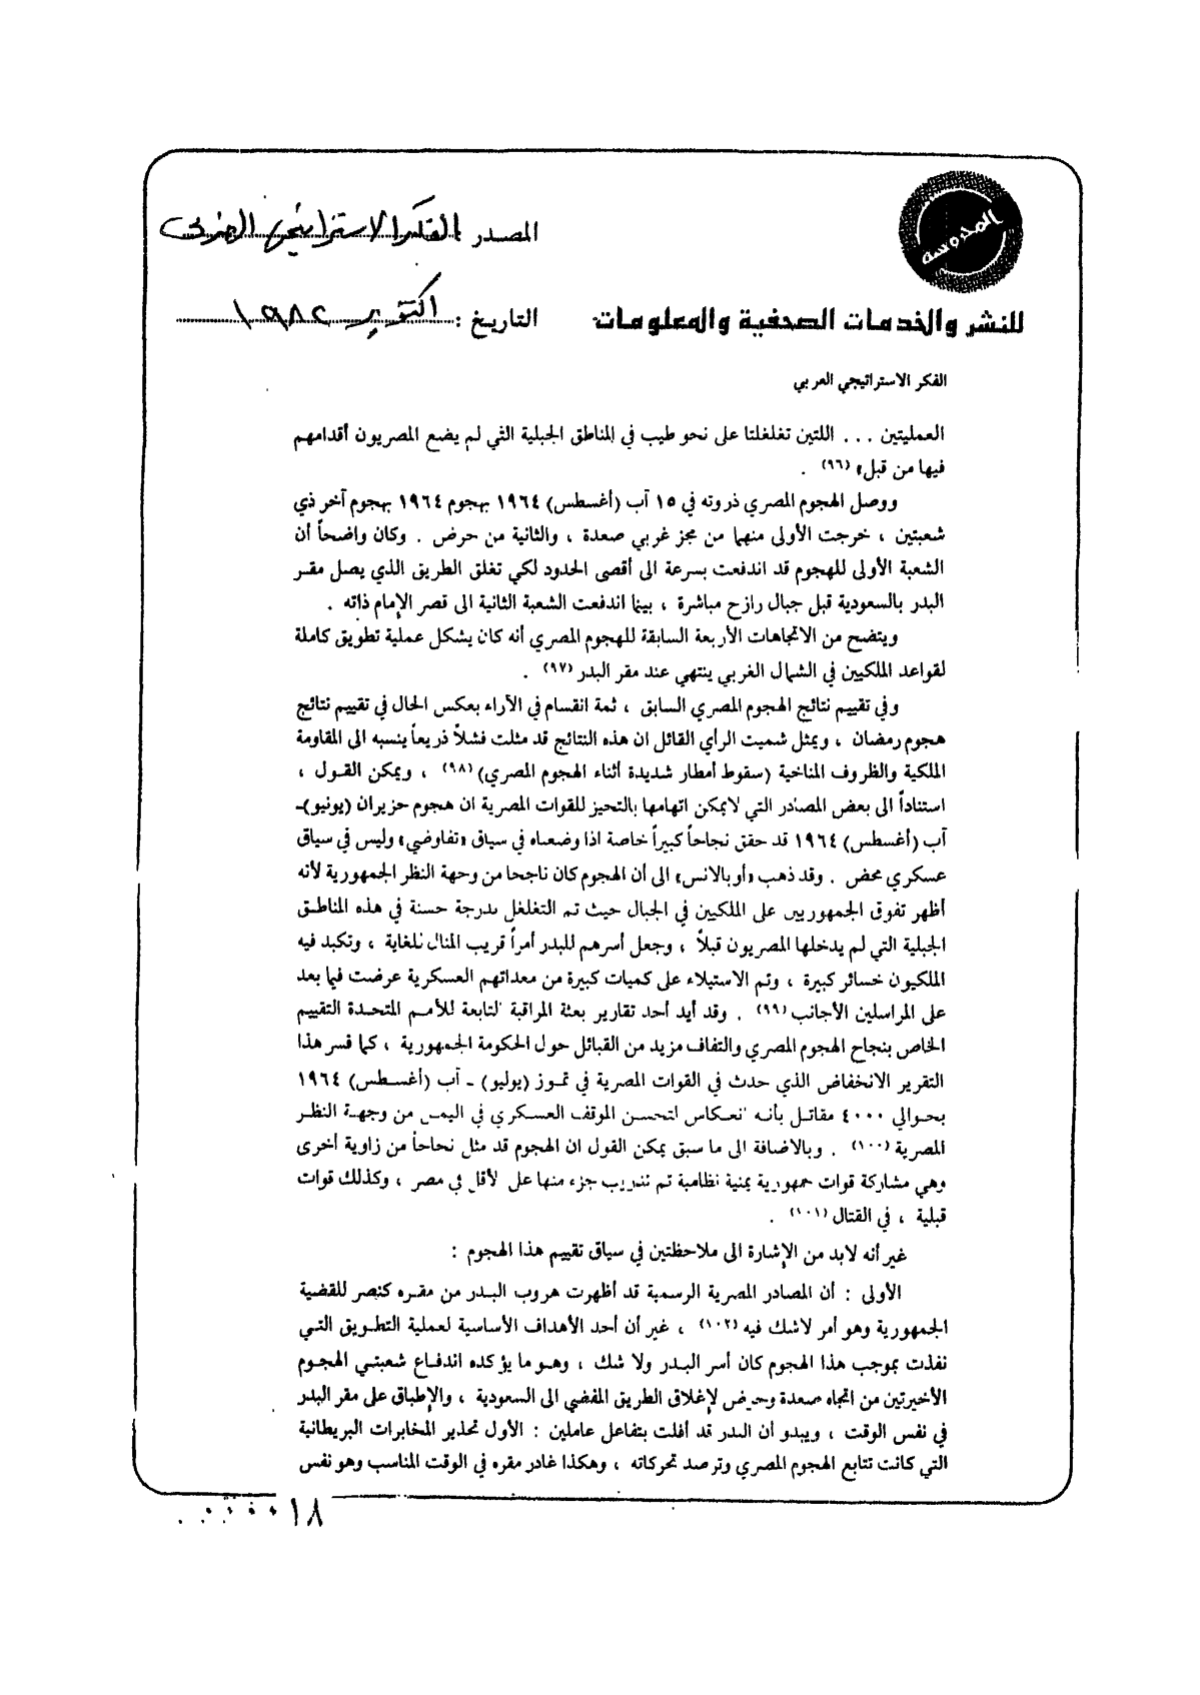 المحروسة
المصدر : الفكر الاستراتيجي العربي
للنشر والخدمات الصحفية والمعلومات
التاريخ : اكتوبر ١٩٨٢
الفكر الاستراتيجي العربي
العمليتين ... اللتين تغلغلتا على نحو طيب في المناطق الجبلية التي لم يضع المصريون أقدامهم
فيها من قبل» (٩٦) .
ووصل الهجوم المصري ذروته في ١٥ آب (أغسطس) ١٩٦٤ بهجوم ١٩٦٤ بهجوم آخر ذي
شعبتين ، خرجت الأولى منهما من مجز غربي صعدة ، والثانية من حرض . وكان واضحاً أن
الشعبة الأولى للهجوم قد اندفعت بسرعة الى أقصى الحدود لكي تغلق الطريق الذي يصل مقر
البدر بالسعودية قبل جبال رازح مباشرة ، بينما اندفعت الشعبة الثانية الى قصر الإمام ذاته .
ويتضح من الاتجاهات الأربعة السابقة للهجوم المصري أنه كان يشكل عملية تطويق كاملة
لقواعد الملكيين في الشمال الغربي ينتهي عند مقر البدر (٩٧) .
وفي تقييم نتائج الهجوم المصري السابق ، ثمة انقسام في الآراء بعكس الحال في تقييم نتائج
هجوم رمضان ، ويمثل شميت الرأي القائل ان هذه النتائج قد مثلت فشلاً ذريعاً ينسبه الى المقاومة
الملكية والظروف المناخية (سقوط أمطار شديدة أثناء الهجوم المصري) (٩٨) ، ويمكن القول ،
استناداً الى بعض المصادر التي لايمكن اتهامها بالتحيز للقوات المصرية ان هجوم حزيران (يونيو)ـ
آب (أغسطس) ١٩٦٤ قد حقق نجاحاً كبيراً خاصة اذا وضعناه في سياق «تفاوضي» وليس في سياق
عسكري محض . وقد ذهب «أوبالانس» الى أن الهجوم كان ناجحا من وجهة النظر الجمهورية لأنه
أظهر تفوق الجمهوريين على الملكيين في الجبال حيث تم التغلغل بدرجة حسنة في هذه المناطق
الجبلية التي لم يدخلها المصريون قبلاً ، وجعل أسرهم للبدر أمراً قريب المنال للغاية ، وتكبد فيه
الملكيون خسائر كبيرة ، وتم الاستيلاء على كميات كبيرة من معداتهم العسكرية عرضت فيما بعد
على المراسلين الأجانب (٩٩) . وقد أيد أحد تقارير بعثة المراقبة التابعة للأمم المتحدة التقييم
الخاص بنجاح الهجوم المصري والتفاف مزيد من القبائل حول الحكومة الجمهورية ، كما فسر هذا
التقرير الانخفاض الذي حدث في القوات المصرية في تموز (يوليو) ـ آب (أغسطس) ١٩٦٤
بحوالي ٤٠٠٠ مقاتل بأنه انعكاس لتحسن الموقف العسكري في اليمن من وجهة النظر
المصرية (١٠٠) . وبالاضافة الى ما سبق يمكن القول ان الهجوم قد مثل نجاحاً من زاوية أخرى
وهي مشاركة قوات جمهورية يمنية نظامية تم تدريب جزء منها على الأقل في مصر ، وكذلك قوات
قبلية ، في القتال (١٠١) .
غير أنه لابد من الإشارة الى ملاحظتين في سياق تقييم هذا الهجوم :
الأولى : أن المصادر المصرية الرسمية قد أظهرت هروب البدر من مقره كنصر للقضية
الجمهورية وهو أمر لاشك فيه (١٠٢) ، غير أن أحد الأهداف الأساسية لعملية التطويق التي
نفذت بموجب هذا الهجوم كان أسر البدر ولا شك ، وهو ما يؤكده اندفاع شعبتي الهجوم
الأخيرتين من اتجاه صعدة وحرض لإغلاق الطريق المفضي الى السعودية ، والإطباق على مقر البدر
في نفس الوقت ، ويبدو أن البدر قد أفلت بتفاعل عاملين : الأول تحذير المخابرات البريطانية
التي كانت تتابع الهجوم المصري وترصد تحركاته ، وهكذا غادر مقره في الوقت المناسب وهو نفس
١٨